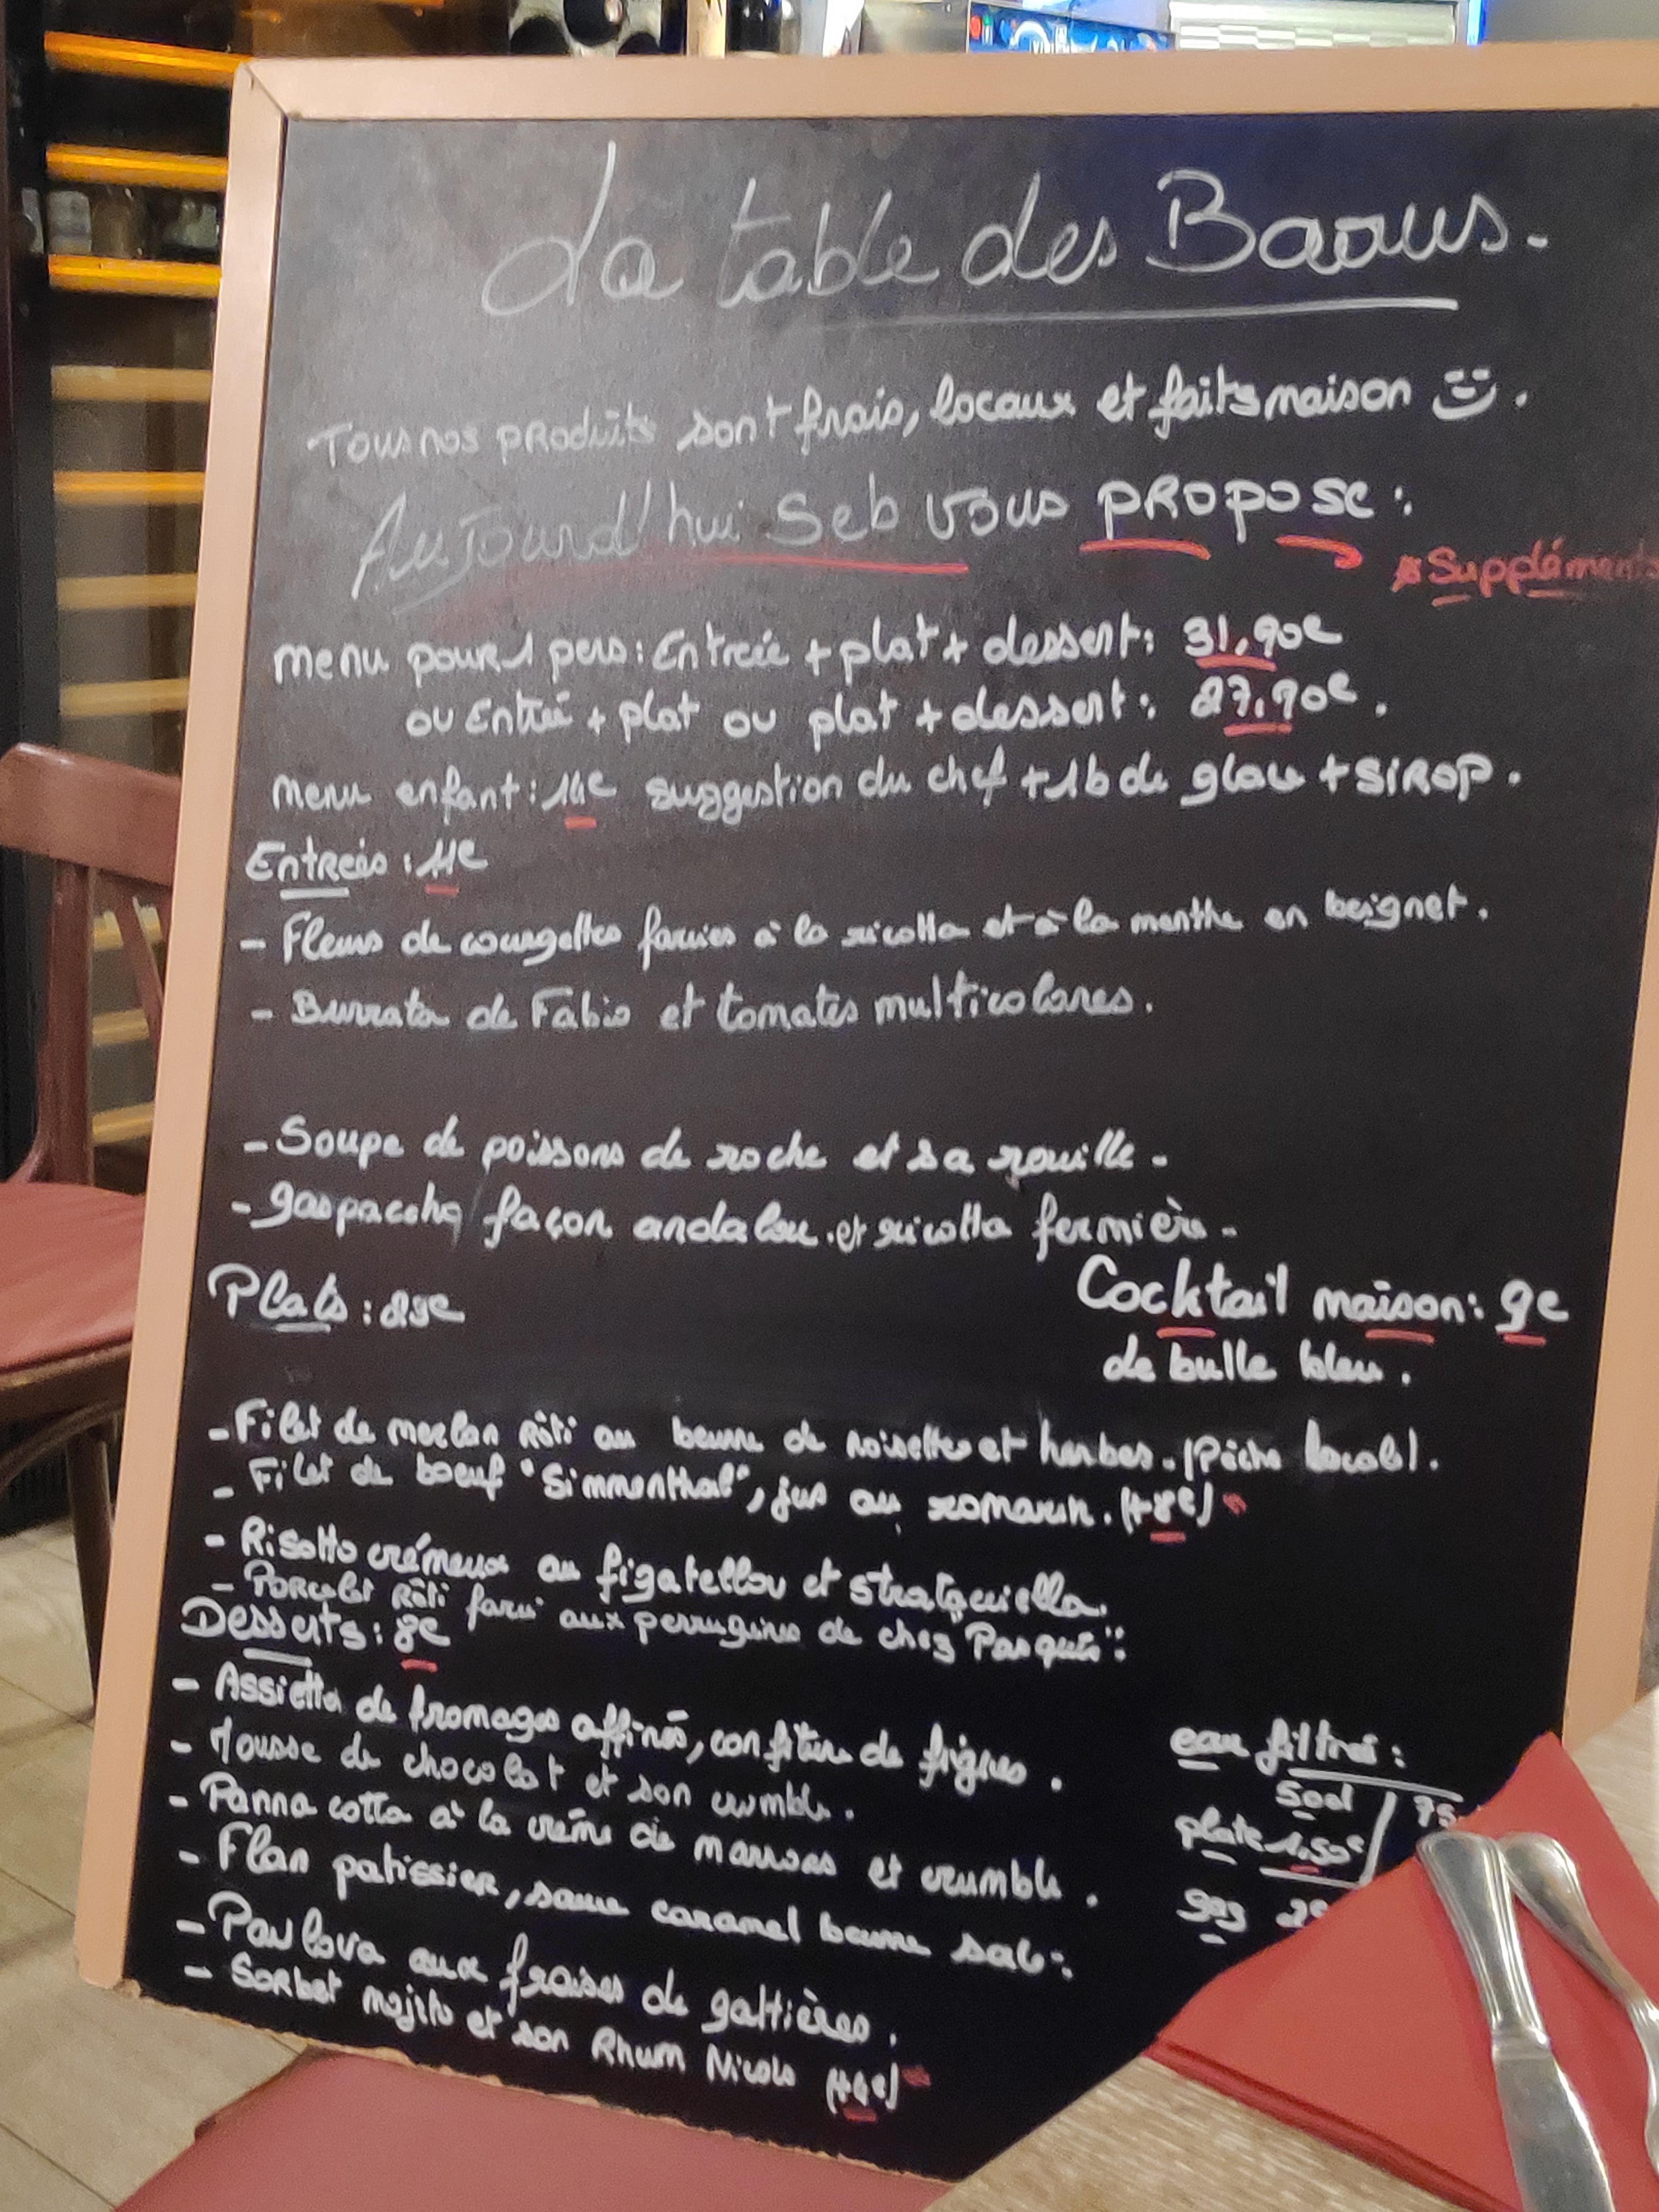 La table des Baous.
Tous nos produits sont frais, locaux et faits maison
Aujourd'hui Seb vous propose :
*Suppléments
Menu pour 1 pers : Entrée + plat + dessert : 31,90€
ou Entrée + plat ou plat + dessert : 27,90€.
Menu enfant : 14€ suggestion du chef + 1b de glace + SIROP.
Entrées : 11€
- Fleurs de courgettes farcies à la ricotta et à la menthe en beignet.
- Burrata de Fabio et tomates multicolores.
- Soupe de poissons de roche et sa rouille -
- gaspaccho façon andalou et ricotta fermière -
Plats : 23€
Cocktail maison : 9€
de bulle bleu.
- Filet de merlan Rôti au beurre de noisettes et herbes. (Pêche locale).
- Filet de boeuf "Simmenthal", jus au romarin. (+8€) *
- Risotto crémeux au figatellou et stracciella.
- Porcelet Rôti farci aux perrugines de chez
Desserts : 8€
- Assiette de fromages affinés, confiture de figues.
- Mousse de chocolat et son crumble.
- Panna cotta à la crème de marrons et crumble.
- Flan patissier, sauce caramel beurre salé.
- Pavlova aux fraises de gattières.
- Sorbet mojito et son Rhum (+4€) *
eau filtrée :
50cl / 75
plate 1,50€
gaz 2€